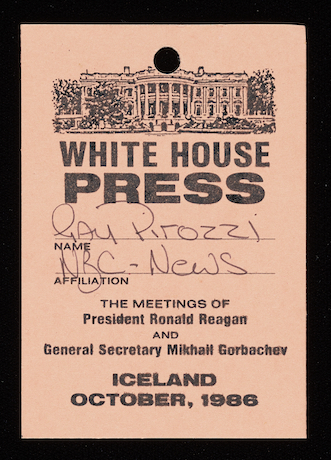 WHITE HOUSE
PRESS
Gay Pirozzi
NAME
NBC-News
AFFILIATION
THE MEETINGS OF
President Ronald Reagan
AND
General Secretary Mikhail Gorbachev
ICELAND
OCTOBER, 1986